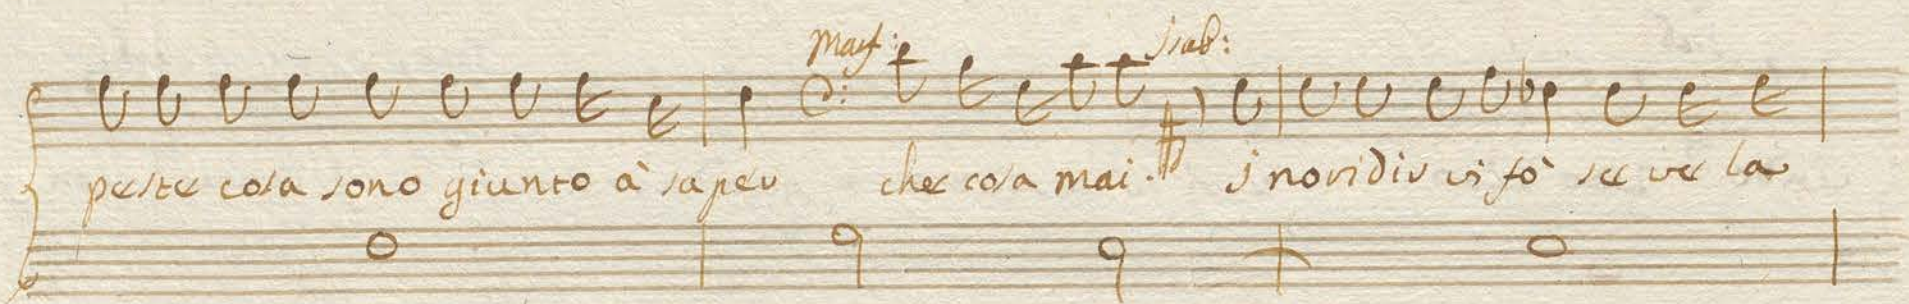 Mas: Isab:
peste cosa sono giunto à saper che cosa mai. inoridir vi fò se ve la